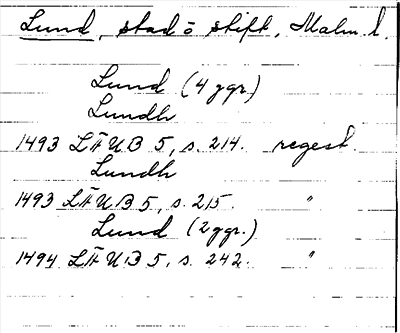 Lund, stad o stift, Malm. l.
Lund (4 ggr.)
Lundh
1493 LÄUB 5, s. 214. regest.
Lundh
1493 LÄUB 5, s. 215. "
Lund (2 ggr.)
1494 LÄUB 5, s. 242. "